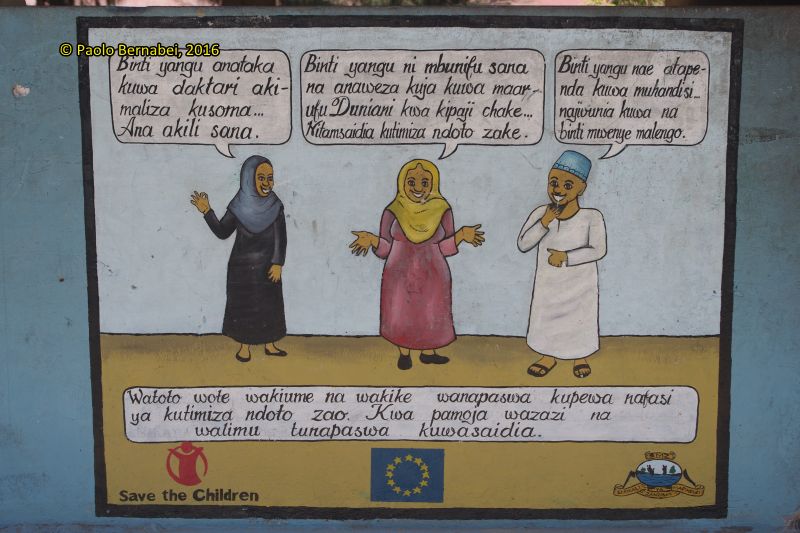 © Paolo Bernabei, 2016
Binti yangu anataka
kuwa daktari aki-
maliza kusoma...
Ana akili sana.
Binti yangu ni mbunifu sana
na anaweza kuja kuwa maar-
ufu Duniani kwa kipaji chake...
Nitamsaidia kutimiza ndoto zake.
Binti yangu nae atape-
nda kuwa muhandisi...
najivunia kuwa na
binti mwenye malengo.
Watoto wote wakiume na wakike wanapaswa kupewa nafasi
ya kutimiza ndoto zao. Kwa pamoja wazazi na
walimu tunapaswa kuwasaidia.
Save the Children